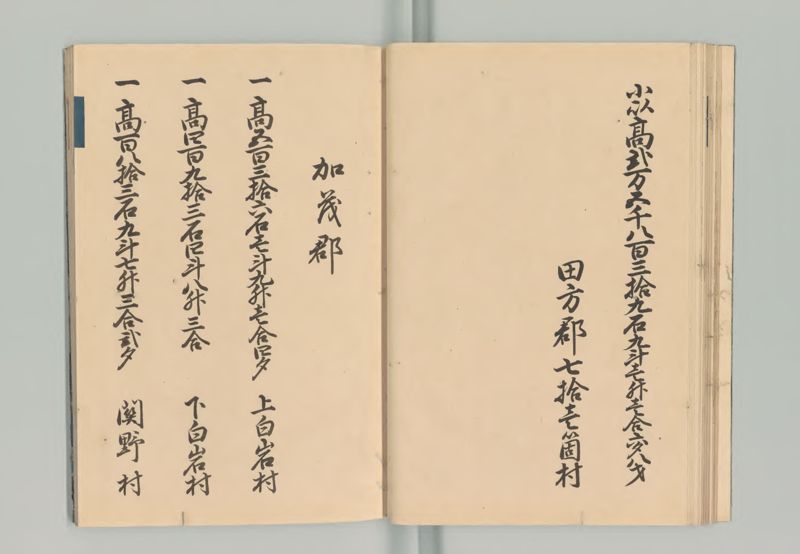 小以高弐万五千八百三拾九石九斗壱升壱合六夕八才
田方郡七拾壱箇村
加茂郡
一高五百三拾六石壱斗九升壱合四夕 上白岩村
一高四百九拾三石四斗八升三合 下白岩村
一高百八拾三石九斗七升三合弐夕 関野村